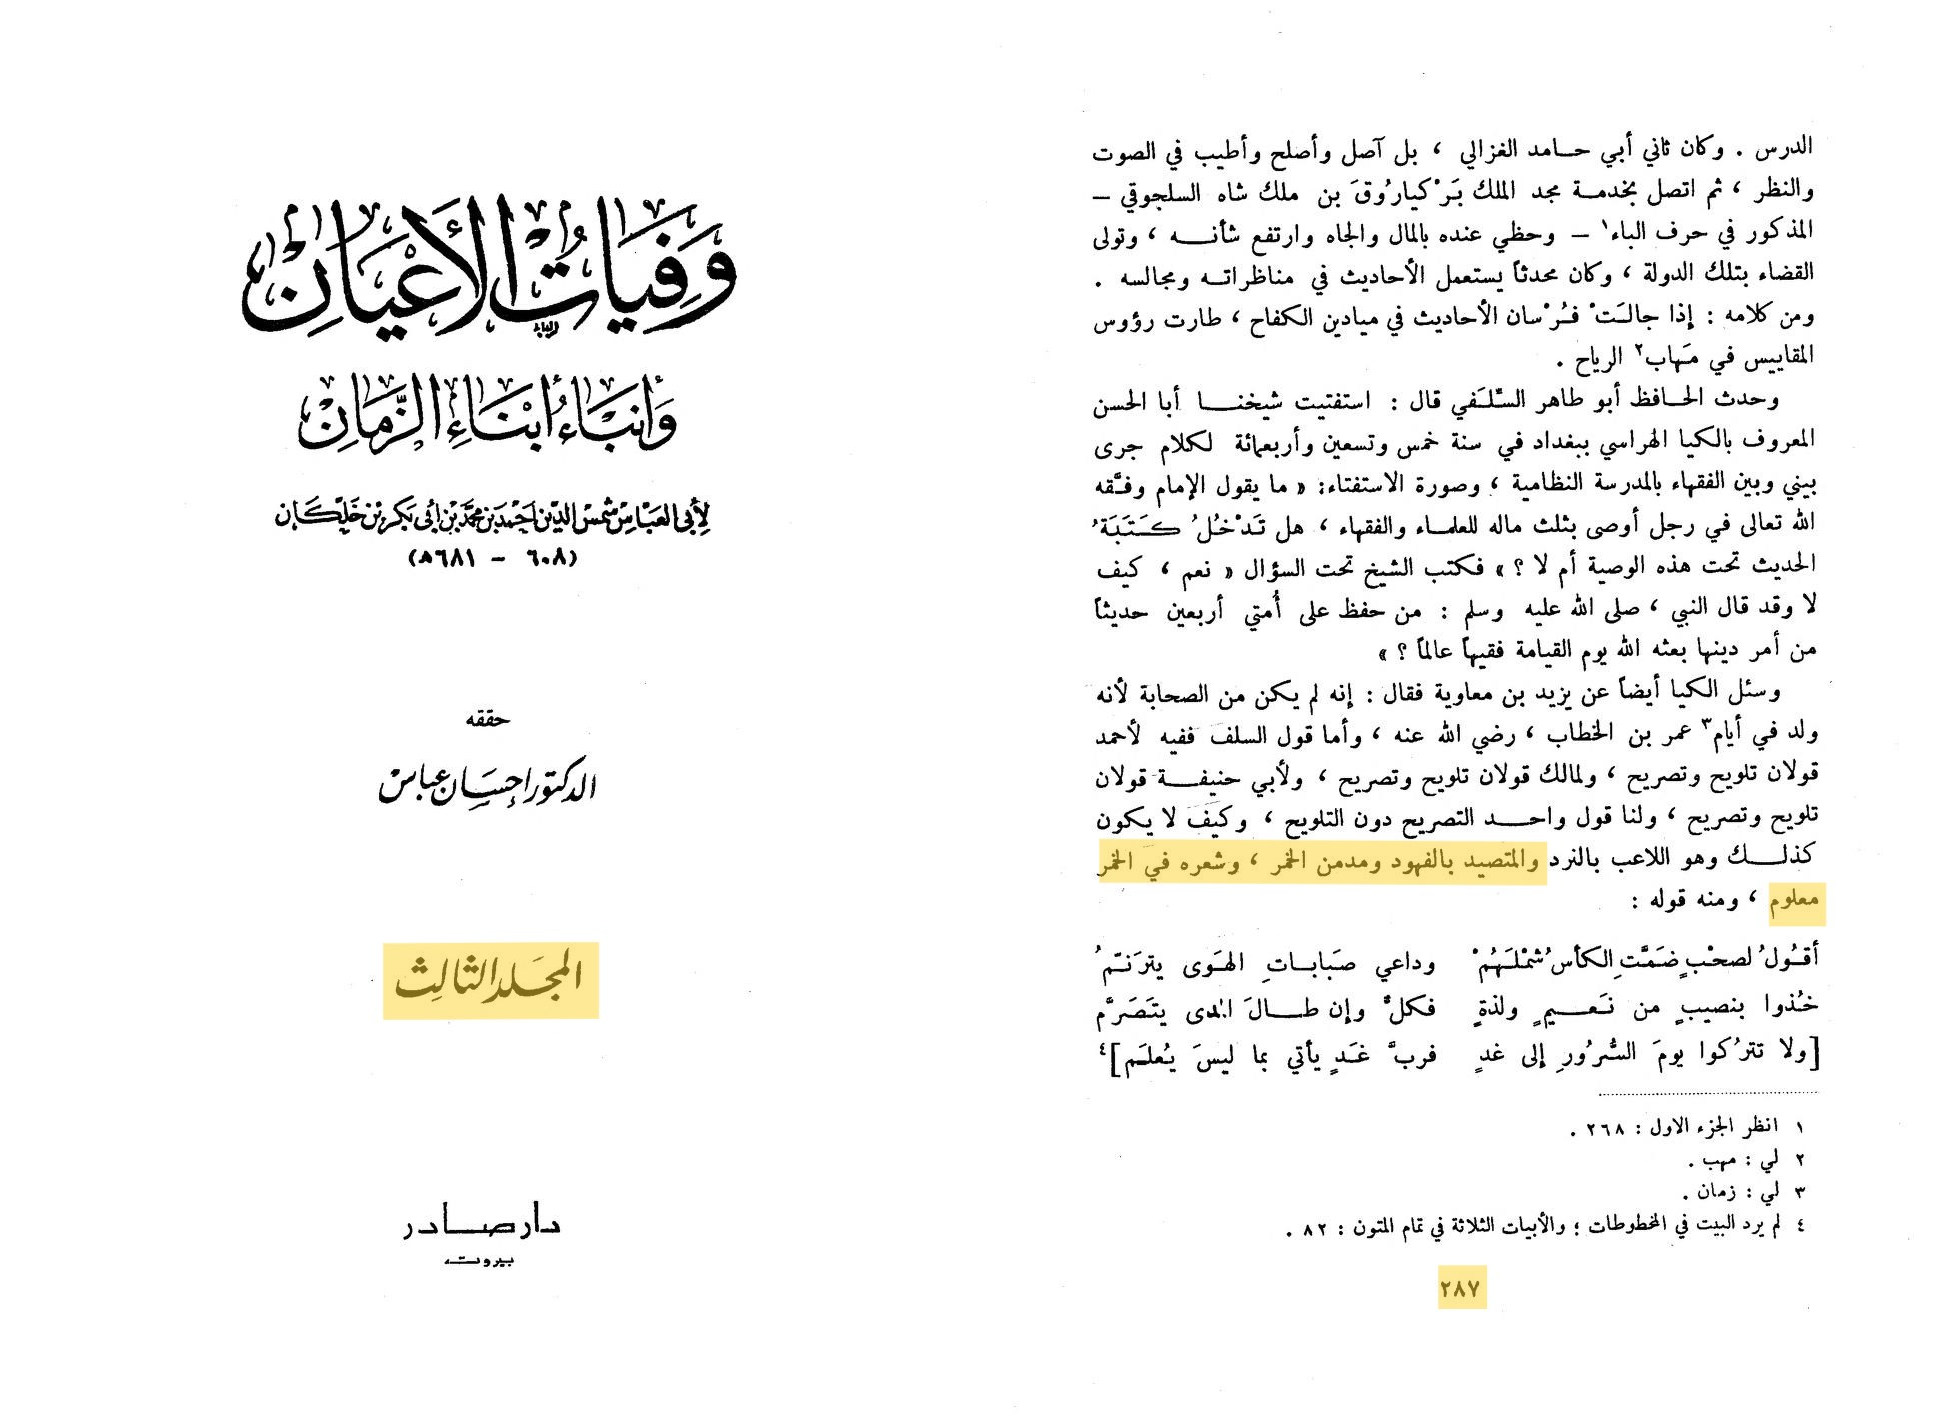 وَفِيَاتُ الأَعْيَانِ
وَأَنْبَاءُ أَبْنَاءِ الزَّمَانِ
لأبي العباس شمس الدين أحمد بن محمد بن أبي بكر بن خلكان
(٦٠٨ - ٦٨١هـ)
حققه
الدكتور إحسان عباس
المجلد الثالث
دار صادر
بيروت
الدرس . وكان ثاني أبي حامد الغزالي ، بل آصل وأصلح وأطيب في الصوت
والنظر ، ثم اتصل بخدمة مجد الملك بَرْكيارُوقَ بن ملك شاه السلجوقي –
المذكور في حرف الباء١ – وحظي عنده بالمال والجاه وارتفع شأنه ، وتولى
القضاء بتلك الدولة ، وكان محدثاً يستعمل الأحاديث في مناظراته ومجالسه .
ومن كلامه : إذا جالَتْ فُرْسان الأحاديث في ميادين الكفاح ، طارت رؤوس
المقاييس في مَهاب٢ الرياح .
وحدث الحافظ أبو طاهر السِّلَفي قال : استفتيت شيخنا أبا الحسن
المعروف بالكيا الهراسي ببغداد في سنة خمس وتسعين وأربعمائة لكلام جرى
بيني وبين الفقهاء بالمدرسة النظامية ، وصورة الاستفتاء: « ما يقول الإمام وفقه
الله تعالى في رجل أوصى بثلث ماله للعلماء والفقهاء ، هل تَدْخُلُ كَتَبَةُ
الحديث تحت هذه الوصية أم لا ؟ » فكتب الشيخ تحت السؤال « نعم ، كيف
لا وقد قال النبي ، صلى الله عليه وسلم : من حفظ على أُمتي أربعين حديثاً
من أمر دينها بعثه الله يوم القيامة فقيهاً عالماً ؟ »
وسئل الكيا أيضاً عن يزيد بن معاوية فقال : إنه لم يكن من الصحابة لأنه
ولد في أيام٣ عمر بن الخطاب ، رضي الله عنه ، وأما قول السلف ففيه لأحمد
قولان تلويح وتصريح ، ولمالك قولان تلويح وتصريح ، ولأبي حنيفة قولان
تلويح وتصريح ، ولنا قول واحد التصريح دون التلويح ، وكيف لا يكون
كذلك وهو اللاعب بالنرد والمتصيد بالفهود ومدمن الخمر ، وشعره في الخمر
معلوم ، ومنه قوله :
أقُولُ لصحْبٍ ضَمَّتِ الكأسُ شمْلَهُمْ وداعي صَبَاباتِ الهَوى يترَنَّمُ
خُذوا بنصيبٍ من نَعيمٍ ولذةٍ فكلٌّ وإن طالَ المدى يتَصَرَّم
[ولا تترُكوا يومَ السُّرُورِ إلى غدٍ فربَّ غَدٍ يأتي بما ليسَ يُعلَم]٤
١ انظر الجزء الاول : ٢٦٨ .
٢ لي : مهب .
٣ لي : زمان .
٤ لم يرد البيت في المخطوطات ؛ والأبيات الثلاثة في تمام المتون : ٨٢ .
٢٨٧